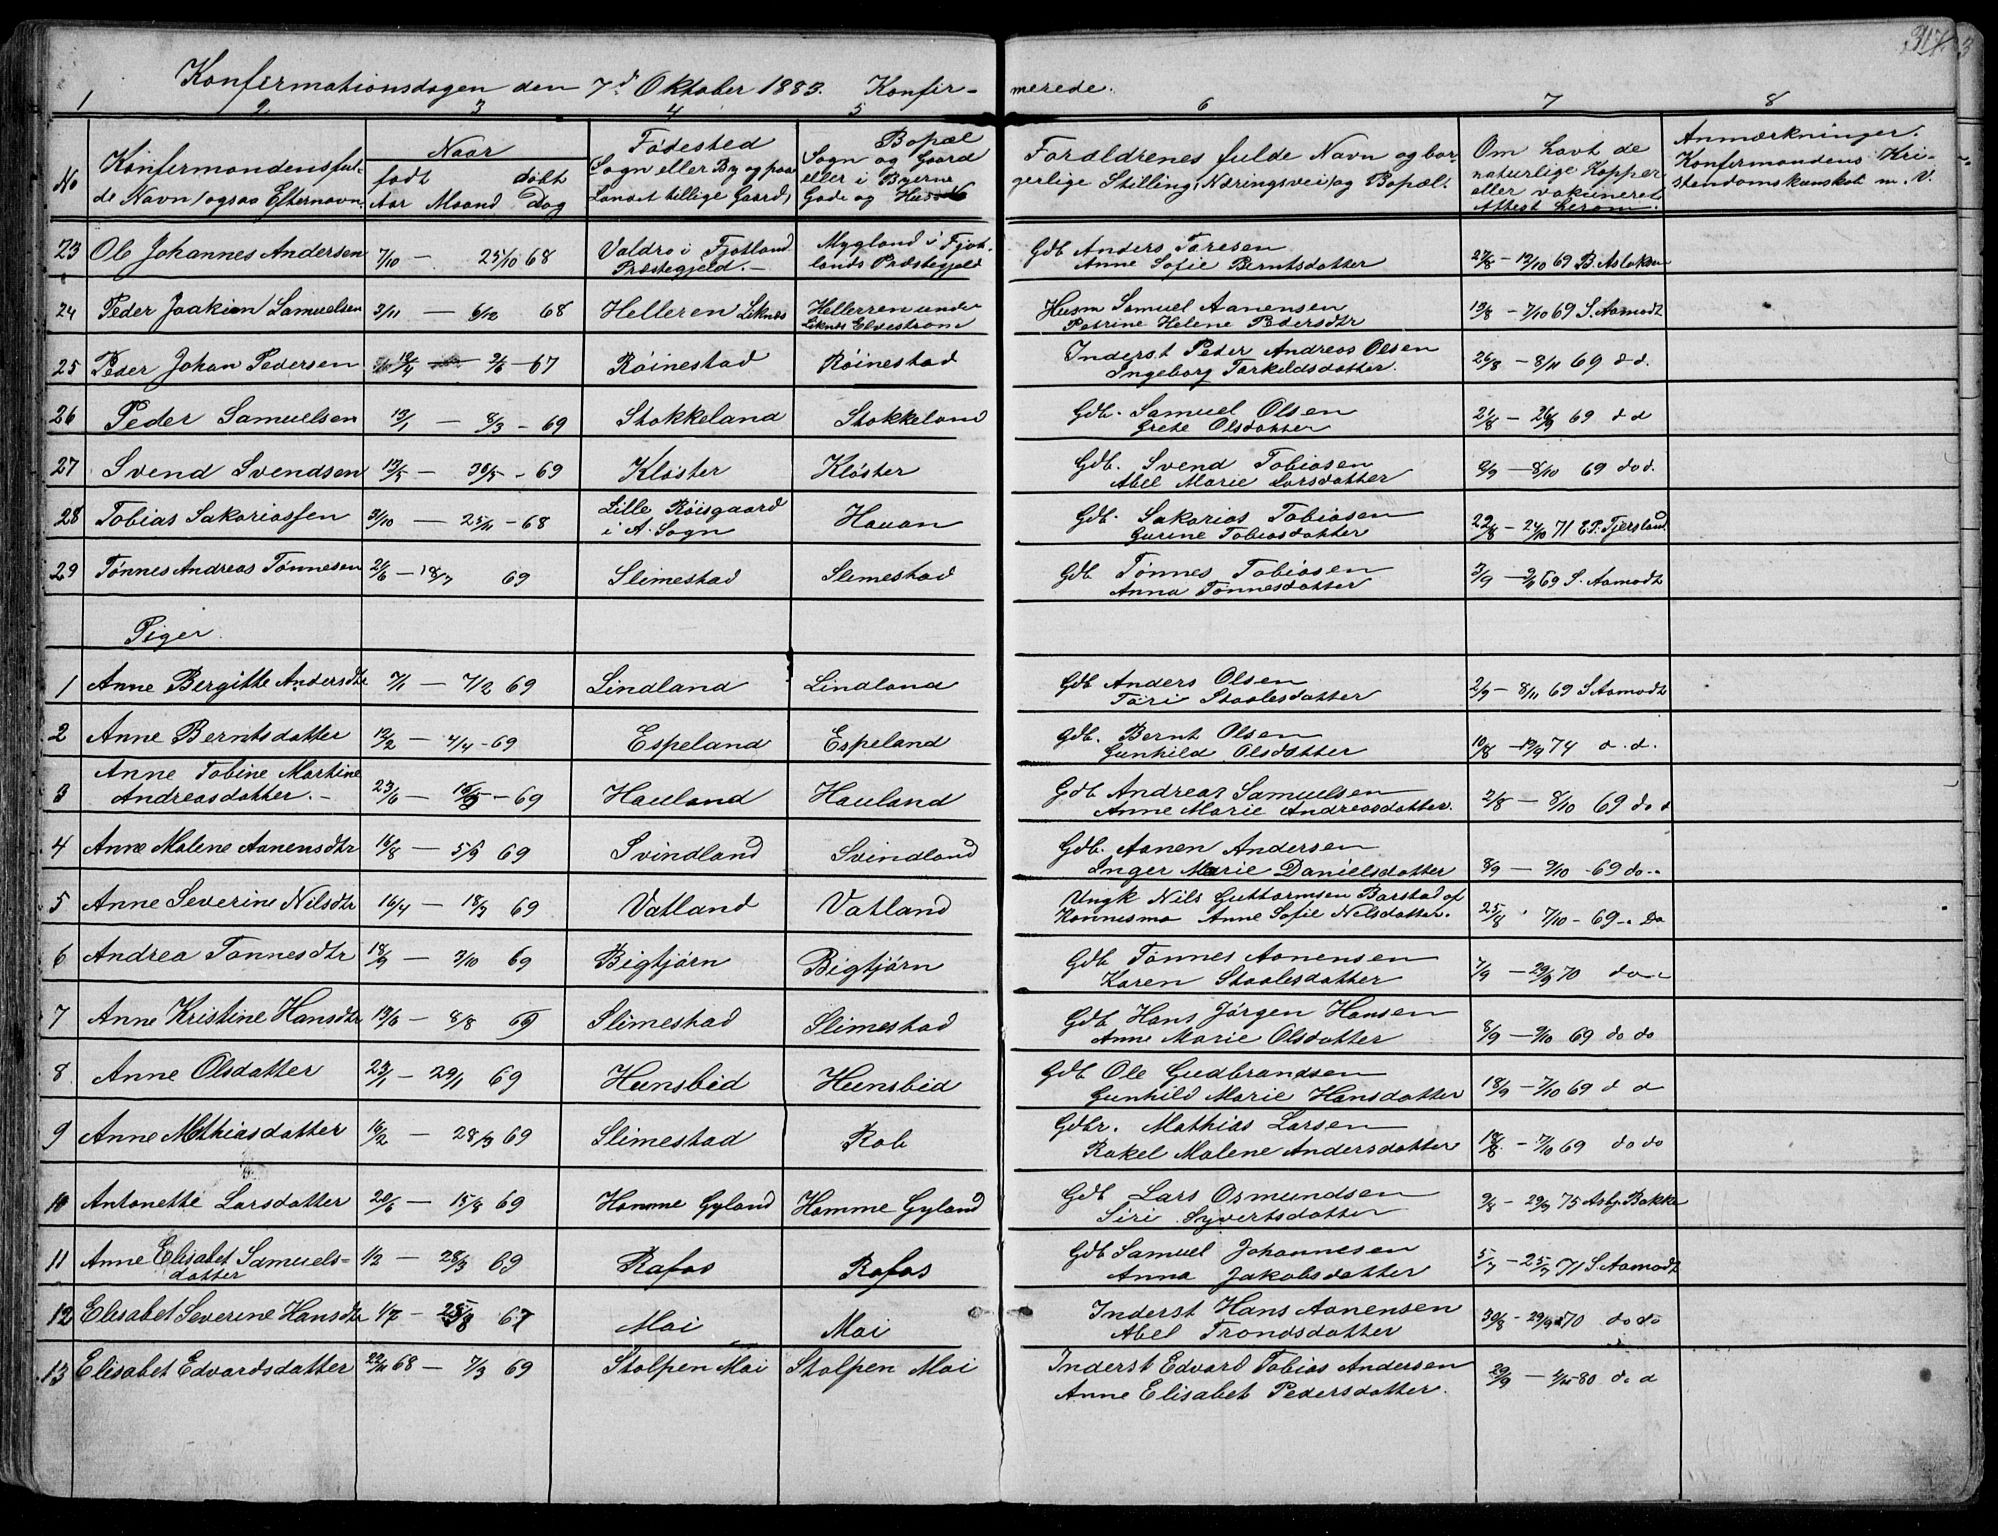 317
Konfirmationsdagen den 7d Oktober 1883. Konfir-merede.
1 2 3 4 5 6 7 8
No
Konfirmandens ful-
de Navn / ogsaa Efternavn
Naar
født døbt
Aar Maand Dag
Fødested
Sogn eller By og paa
Landet tillige Gaard,
Bopæl
Sogn og Gaard
eller i Byerne
Gade og
Forældrenes fulde Navn og bor
gerlige Stilling, (Næringsvei) og Bopæl.
Om havt de
naturlige Kopper
eller vakcineret
Attest herom.
Anmærkninger.
Konfirmandens Kri-
stendomskundskab m. V.
23 Ole Johannes Andersen 7/10 — 25/10 68 Valdro i Fjotland Præstegjeld. — Mygland i Fjot-lands Præstegjeld Gdb Anders Taresen Anne Sofie Berntsdatter 27/8 — 12/10 69 B. Aslaksen
24 Peder Joakim Samuelsen 3/11 — 6/12 68 Helleren Liknes Hellerren under Liknes Elvestrøm Husm Samuel Aanensen Petrine Helene Pedersdtr 13/8 — 7/10 69 S. Aamodt
25 Peder Johan Pedersen — 67 Røinestad Røinestad Inderst Peder Andreas Olsen Ingeborg Tarkildsdatter. 26/8 — 8/11 69 d d.
26 Peder Samuelsen 13/1 — 8/3 — 69 Stokkeland Stokkeland Gdb. Samuel Olsen Grete Olsdatter 21/8 — 26/9 69 d d
27 Svend Svendsen 13/5 — 30/5 — 69 Kløster Kløster Gdb. Svend Tobiasen Abel Marie Larsdatter 2/9 — 8/10 69 do d.
28 Tobias Sakariassen 3/10 — 25/11 — 68 Lille Røisgaard i A. Sogn Hauan Gdb. Sakarias Tobiasen Gurine Tobiasdatter 22/8 — 24/10 71 E.P. Tjersland
29 Tønnes Andreas Tønnesen 21/6 — 18/7 69 Slimestad Slimestad Gdb Tønnes Tobiasen Anna Tønnesdatter 3/9 — 69 S. Aamodt
Piger.
1 Anne Bergitte Andersdtr 7/1 — 7/2 69 Lindland Lindland Gdb Anders Olsen Tøri Staalesdatter 2/9 — 8/11 69 S Aamodt
2 Anne Berntsdatter 12/2 — 4/4 — 69 Espeland Espeland Gdb. Bernt Olsen Gunhild Olsdatter 10/8 — 19/9 74 d. d.
3 Anne Tobine Martine Andreasdatter. — 23/6 — — 69 Hauland Hauland Gdb Andreas Samuelsen Anne Marie Andreasdatter. 2/8 — 8/10 69 do d
4 Anne Malene Aanensdtr 16/8 — 5/9 69 Svindland Svindland Gdb. Aanen Andersen Inger Marie Danielsdatter 8/9 — 9/10 - 69 do
5 Anne Severine Nilsdtr 16/4 — 18/7 69 Vatland Vatland Ungk Nils Guttormsen Barstad af Konnesmo Anne Sofie Nilsdatter. 25/8 7/10 - 69 - Do
6 Andrea Tønnesdtr 18/9 — 3/10 69 Bigtjørn Bigtjørn Gdb Tønnes Aanensen Karen Staalesdatter 7/9 — 29/9 70 do
7 Anne Kristine Hansdtr 13/6 — 8/8 69 Slimestad Slimestad Gdb Hans Jørgen Hansen Anne Marie Olsdatter 8/9 — 9/10 69 do do
8 Anne Olsdatter 23/1 — 29/1 69 Hunsbed Hunsbed Gdb Ole Gudbrandsen Gunhild Marie Hansdatter 18/9 — 7/10 69 d d
9 Anne Mathiasdatter 16/2 — 28/3 69 Slimestad Rob Gdbr. Mathias Larsen Rakel Malene Andersdatter 18/8 — 7/10 69 do do
10 Antonette Larsdatter 20/6 — 15/8 69 Hamme Gyland Hamme Gyland Gdb Lars Osmundsen Siri Syvertsdatter 9/8 — 29/9 75 Asbj Bakke
11 Anne Elisabet Samuels-datter 1/2 — 28/3 69 Rafos Rafos Gdb Samuel Johannesen Anna Jakobsdatter 5/7 — 25/7 71 S. Aamodt
12 Elisabet Severine Hansdtr 1/7 — 67 Moi Moi Inderst Hans Aanensen Abel Trondsdatter 30/8 — 29/9 70 do do
13 Elisabet Edvardsdatter 22/11 68 — 7/3 69 Stolpen Moi Stolpen Moi Inderst Edvard Tobias Andersen Anne Elisabet Pedersdatter. 29/9 — 80 do d